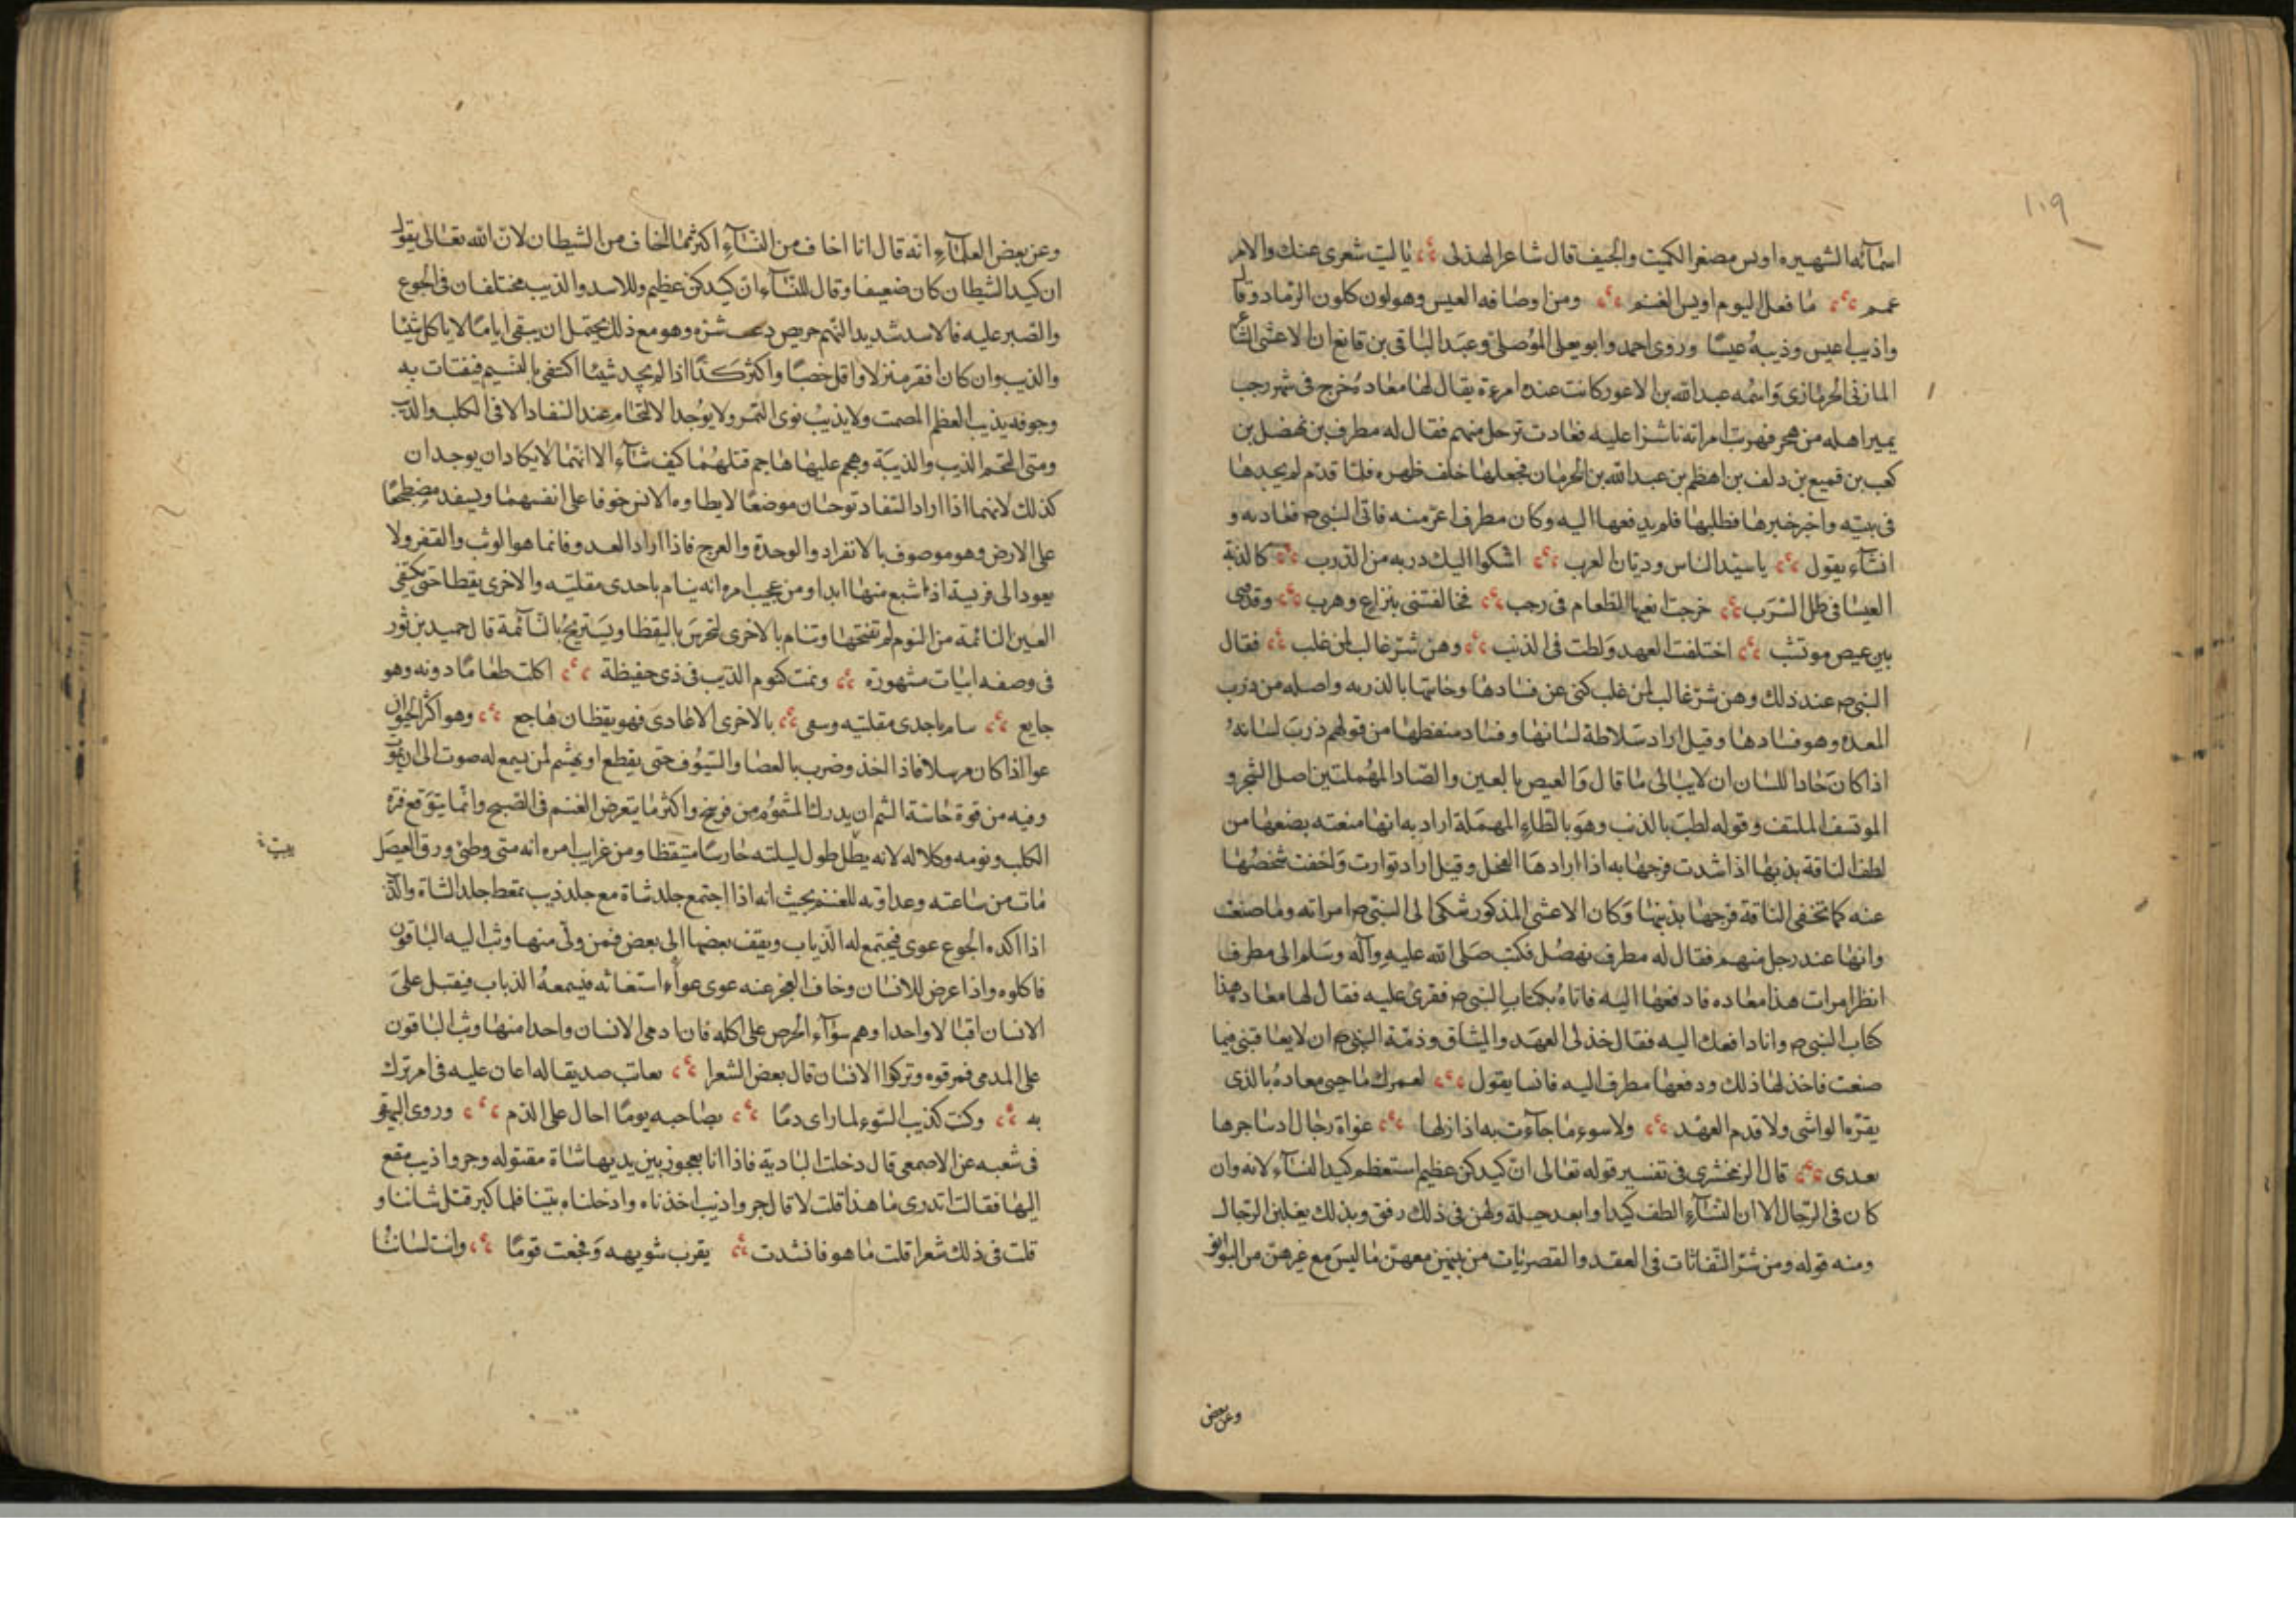 ١٠٩
اسمآئه الشهيره اويس مصغرا لكميت والجيف قال شاعر الهذلى يا ليت شعرى عنك والامر
عمم ما فعل اليوم اويس الغنم ومن اوصافه العيس وهو لون كلون الرماد وقال
واذيب اعيس وذيبهُ عيسًا وروى احمد وابو يعلى المُوصلى وعبَد الباقى بن قانع ان الاعشى الشاعر
المازنى الحرمازى وَاسمُه عبد الله بن الاعور كانت عنده امرءة يقال لها معاده فخرج فى شهر رجب
يمير اهله من هجر فهربت امراته ناشزا عليه فعادت برجل منهم فقال له مطرف بن نهضل بن
كعب بن قميع بن دلف بن اهظم بن عبد الله بن الحرمان فجعلها خلف ظهره فلمّا قدم لم يجدها
فى بيته واخبر خبرها فطلبها فلم يدفعها اليه وكان مطرف اعزّ منه فاتى النبى ص فعاد به و
انشآء يقول يا سيّد الناس وديّان العرب اشكوا اليك دربه من الدرب كالذبة
العيسا فى ظل السَرَب خرجت ابغيها الطعام فى رجب فخالفتنى بنزاع وهرب وقدمى
بين عيص موتشب اختلفت العهد وَلطت فى الذنب وهن شرّ غالب لمن غلب فقال
النبى ص عند ذلك وهن شرّ غالب لمن غلب كنى عن فسادها وخانتها بالذربه واصله من ذرب
المعده وهو فسادها وقيل اراد سَلاطة لسانها وفساد منطقها من قولهم ذرب لسانهُ
اذا كانَ حادا للسان ان لا يبالى ما قال وَالعيص بالعين والصّاد المهُملتين اصل الشجر و
الموتشف الملتف وقوله لطبَ بالذنب وهوَ بالطاءِ المهمَلة اراد به انها منعته بضعها من
لطف الناقة بذنبها اذا شدت فرجها به اذا ارادهَا الفحل وقيل اراد توارت وَاخفت شخصُها
عنه كما تخفى الناقة فرجها بذنبها وَكان الاعشى المذكور شكى الى النبى ص امراته وما صنعت
وانها عند رجل منهم فقال له مطرف نهصُل فكتب صَلى الله عليهِ وآله وسَلم الى مطرف
انظر امرات هذا معاده فادفعها اليه فاتاهُ بكتاب النبى ص فقرئ عليه فقال لها معاده هذا
كتاب النبى ص وانا دافعك اليه فقال خذ لى العهَد والميثاق وذمّة النبى ص ان لا يعاقبنى فيما
صنعت فاخذ لها ذلك ودفعها مطرف اليه فانسا يقول لعمرك ما حبى معادهُ بالذى
يغيّره الواشى ولا قدم العهد ولا سوء ما جآءت به اذ ازلها غواة رجال اد ساجرها
بعدى قال الزمخشرى فى تفسير قوله تعالى انّ كيدكن عظيم استعظم كيد النسآء لانه وان
كان فى الرّجال الا ان النسآءِ الطف كيدا وابعد حيلة ولهن فى ذلك رفق وبذلك يغلبن الرّجال
ومنه قوله ومن شرّ النّفاثات فى العقد والقصريات من بينهن معهنّ ما ليسَ مع غيرهنّ من البوائق
وعن بعض
وعن بعض العلمآءِ انّه قال انا اخاف من النسآءِ اكثر مما اخاف من الشيطان لانّ الله تعالى يقول
ان كيد الشيطان كان ضعيفا وقال للنسآء انّ كيدكن عظيم وللاسد والذيب مختلفان فى الجوع
والصّبر عليه فالاسد شديد النهم حريص شره وهو مع ذلك يحتمل ان يبقى اياما لا ياكل شيئا
والذيب وان كان افقر منزلا واقل خصبًا واكثر كدًا اذا لم يجد شيئا اكتفى بالنسيم فيقتات به
وجوفه يذيب العظم المصمت ولا يذيبُ نوى التمر ولا يوُجد الالتحام عند السفاد الا فى الكلب والذيب
ومتى التحم الذيب والذيبَة وهجم عليهما هاجم قتلهُما كيف شآء الا انهما لا يكادان يوجدان
كذلك لانهما اذا اراد السفاد توخان موضعًا لا يطاوه الانس خوفا على انفسهما ويسفد مضطجعًا
على الارض وهو موصوف بالانفراد والوحدة والعرج فاذا اراد العدو فانما هو الوثب والقفز ولا
يعود الى فريسة اذا شبع منها ابدا ومن عجيب امره انه ينام باحدى مقلتيه والاخرى يقظا حتى يكتفى
العين النائمة من النوم ثم تفتحها وتنام بالاخرى لتحرسَ باليقظا ويَستريحُ بالنآئمة قال حميد بن ثور
فى وصفه ابيات مشهورة ونمت كنوم الذيب فى ذى حفيظة اكلت طعاما دونه وهو
جايع سام باحدى مقلتيه وسعى بالاخرى الاعادى فهو يقظان هاجع وهو اكثر الحيوان
عوا اذا كان مرسلا فاذا اخذ وضرب بالعصا والسّيوُف حتى يقطع او يهشم لمن يسمع له صوت الى ان يموت
وفيه من قوة حاسّة الشم ان يدرك المشموم من فرسخ واكثر ما يتعرض الغنم فى الصبح وانّما يتوقع فترة
الكلب ونومه وكلاله لانه يظل طول ليلته حارسًا متيقظا ومن غرايب امره انه متى وطئ ورق العيصَل
مات من ساعته وعداوته للغنم بحيث انه اذا اجتمع جلد شاة مع جلد ذيب تمعط جلد الشاة والذيب
اذا اكده الجوع عوى فيجتمع له الذياب ويقف بعضها الى بعض فمن ولّى منها وثب اليه الباقون
فاكلوه واذا عرض للانسان وخاف العجز عنه عوى عوآء استغاثه فيسمعهُ الذياب فيقبل علىَ
الانسان اقبالا واحدا وهم سوآء الحرص على اكله فان ادمى الانسان واحدا منها وثب الباقون
على المدمى فمزقوه وتركوا الانسان قال بعض الشعرا يعاتب صديقا له اعان عليه فى امر ترك
به وكنت كذيب السّوء لما راى دمًا بصَاحبه يومًا احال على الدم وروى البيهقى
فى شعبه عن الاصمعى قال دخلت البادية فاذا انا بعجوز بين يديها شاة مقتوله وجرو اذيب مقع
اليها فقالت اتدرى ما هذا قلت لا قال جرو اذنيب اخذناه وادخلناه بيتنا فلما كبر قتل شاتنا و
قلت فى ذلك شعرا قلت ما هو فانشدت يقرب شويهه وَفجعت قومًا وانت لسانا